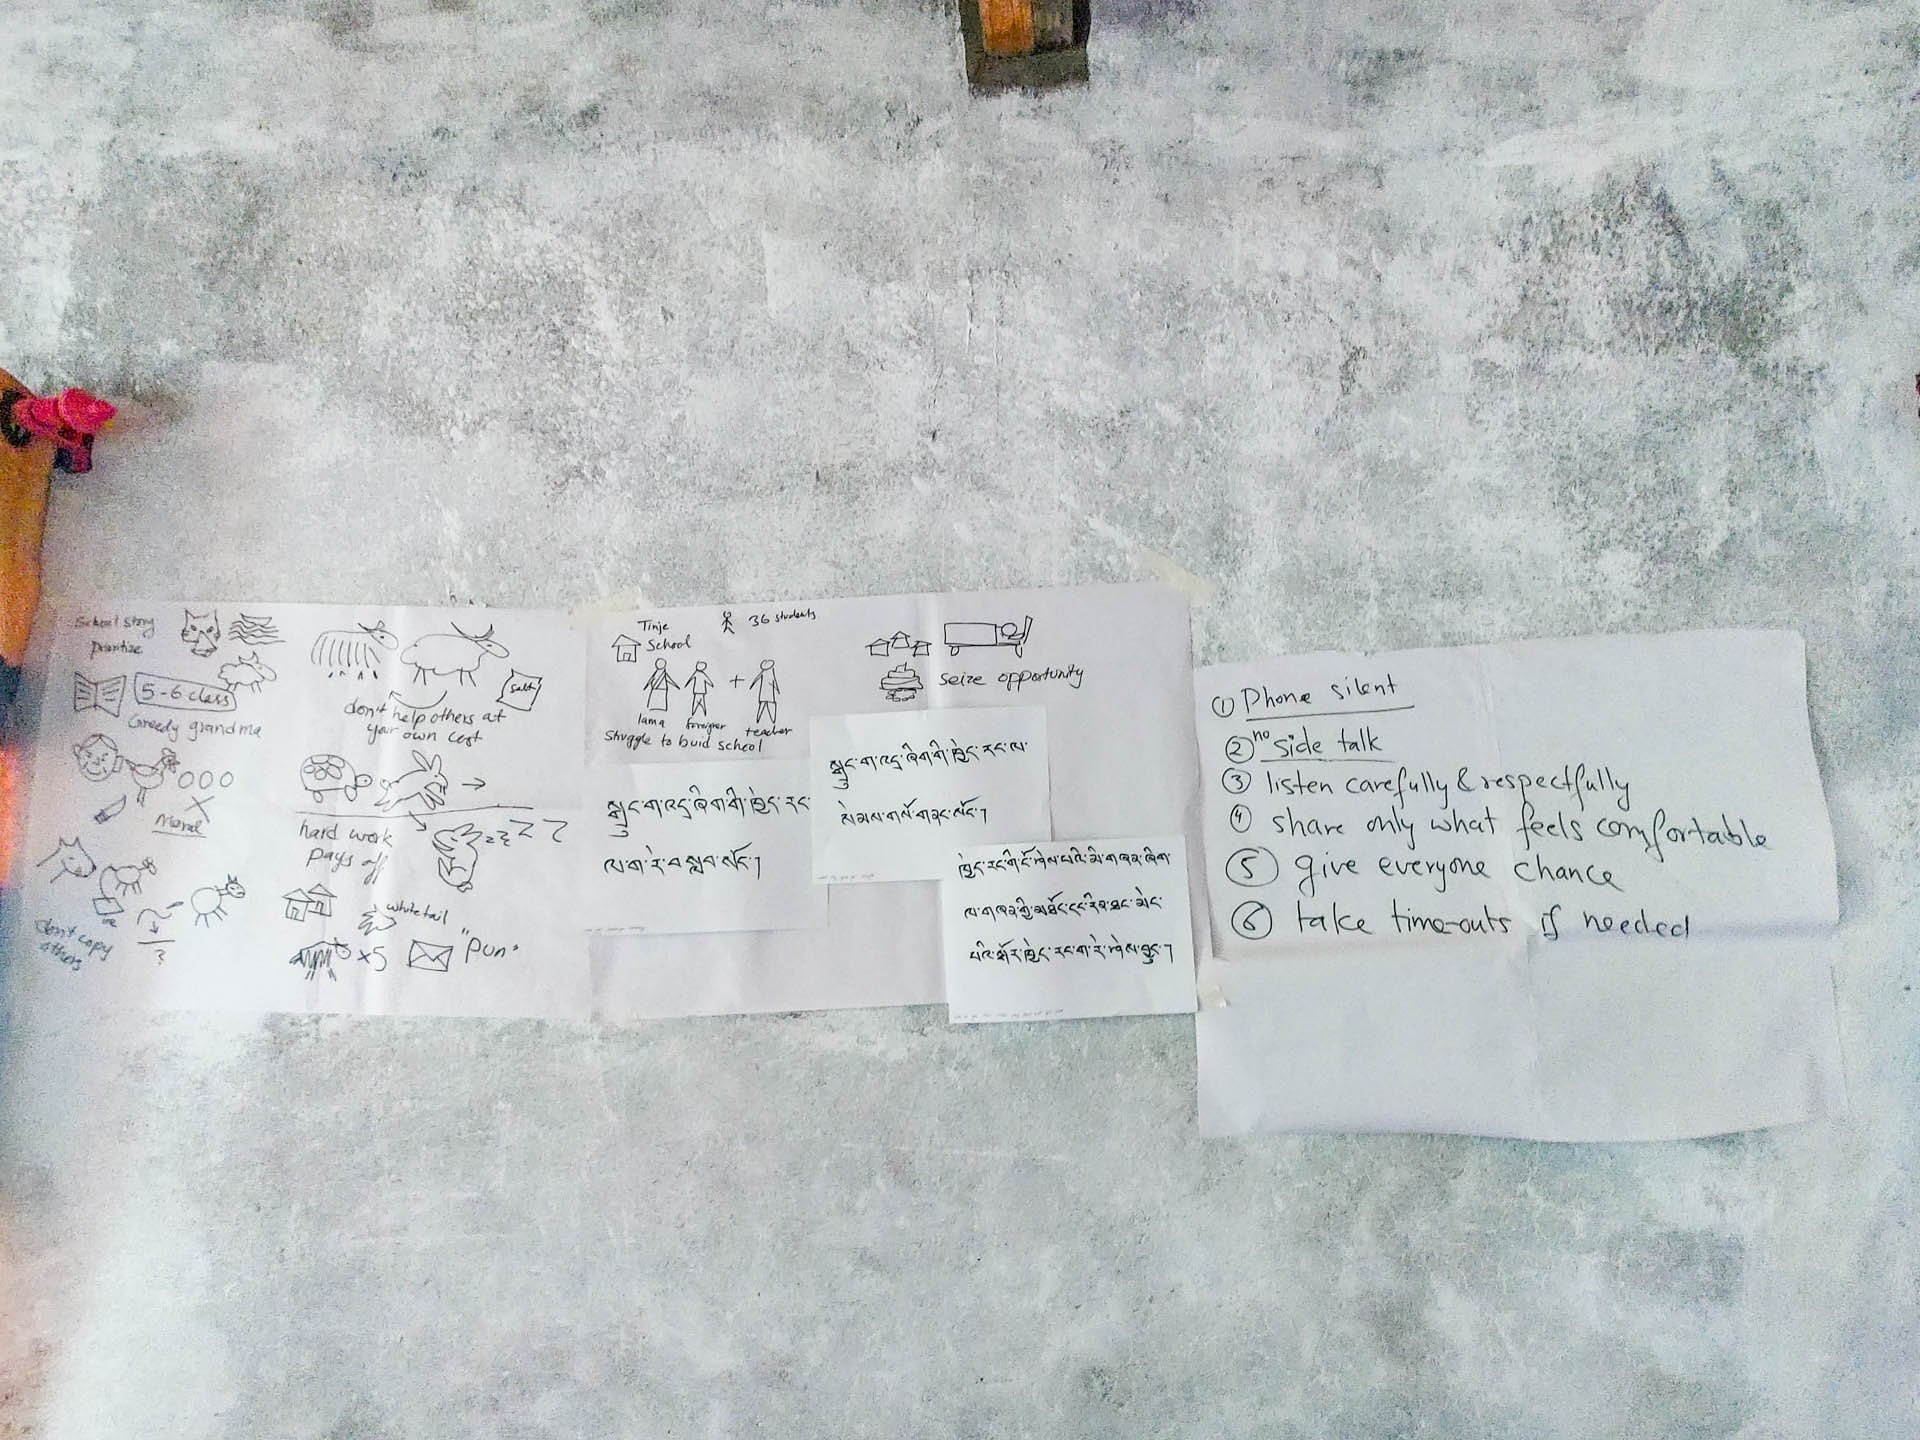 School story
prioritize
5-6 class
Greedy grandma
Moral
don't copy
others
?
salt
don't help others at
your own cost
hard work
pays off
zzzZZ
white tail
x5
"Pun"
Tinje
School
36 students
+
lama foreigner teacher
struggle to buid school
seize opportunity
སྒྲུང་ག་འདྲ་ཞིག་གི་ཁྱེད་རང་
ལ་ག་རེ་བསླབ་སོང་།
སྒྲུང་ག་འདྲ་ཞིག་གི་ཁྱེད་རང་ལ་
སེམས་གསོ་གནང་སོང་།
ཁྱེད་རང་གི་ངོ་ཤེས་པའི་མི་གཞན་ཞིག་
ལ་གཞན་གྱི་མཐོང་དང་རིབ་ཐང་མེད་
པའི་སྐོར་ཁྱེད་རང་ག་རེ་ཤེས་བྱུང་།
① Phone silent
② no side talk
③ listen carefully & respectfully
④ share only what feels comfortable
⑤ give everyone chance
⑥ take time-outs if needed